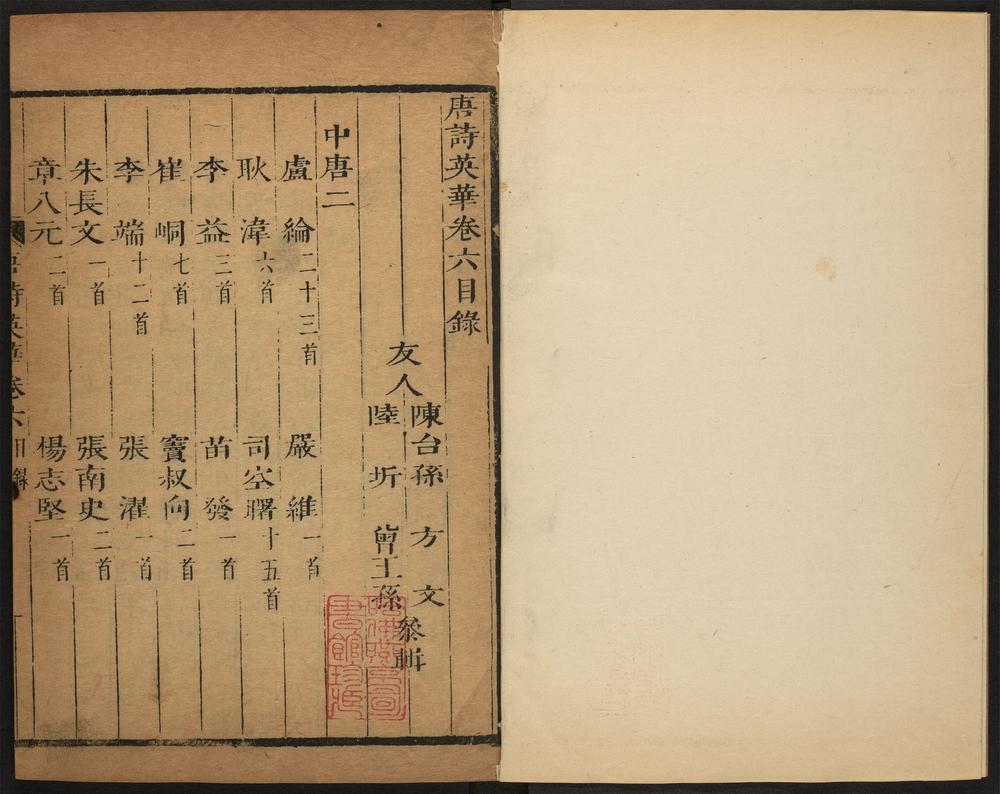 唐詩英華卷六目錄
友人
陳台孫 方文
陸圻 曾王孫
叅輯
中唐二
盧綸二十三首 嚴維一首
耿湋六首 司空曙十五首
李益三首 苗發一首
崔峒七首 竇叔向二首
李端十二首 張濯一首
朱長文一首 張南史二首
章八元二首 楊志堅一首
唐詩英華卷六目錄
哈佛燕京圖
書館珍藏